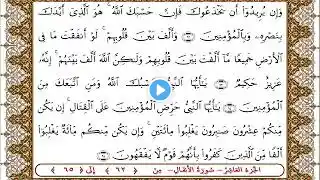 وَإِن يُرِيدُوٓا۟ أَن يَخْدَعُوكَ فَإِنَّ حَسْبَكَ ٱللَّهُ ۚ هُوَ ٱلَّذِىٓ أَيَّدَكَ
بِنَصْرِهِۦ وَبِٱلْمُؤْمِنِينَ ﴿٦٢﴾ وَأَلَّفَ بَيْنَ قُلُوبِهِمْ ۚ لَوْ أَنفَقْتَ مَا فِى
ٱلْأَرْضِ جَمِيعًا مَّآ أَلَّفْتَ بَيْنَ قُلُوبِهِمْ وَلَـٰكِنَّ ٱللَّهَ أَلَّفَ بَيْنَهُمْ ۚ إِنَّهُۥ
عَزِيزٌ حَكِيمٌ ﴿٦٣﴾ يَـٰٓأَيُّهَا ٱلنَّبِىُّ حَسْبُكَ ٱللَّهُ وَمَنِ ٱتَّبَعَكَ مِنَ
ٱلْمُؤْمِنِينَ ﴿٦٤﴾ يَـٰٓأَيُّهَا ٱلنَّبِىُّ حَرِّضِ ٱلْمُؤْمِنِينَ عَلَى ٱلْقِتَالِ ۚ إِن يَكُن
مِّنكُمْ عِشْرُونَ صَـٰبِرُونَ يَغْلِبُوا۟ مِا۟ئَتَيْنِ ۚ وَإِن يَكُن مِّنكُم مِّا۟ئَةٌ يَغْلِبُوٓا۟
أَلْفًا مِّنَ ٱلَّذِينَ كَفَرُوا۟ بِأَنَّهُمْ قَوْمٌ لَّا يَفْقَهُونَ ﴿٦٥﴾
الجزء العاشر - سورة الأنفال - من ٦٢ إلى ٦٥